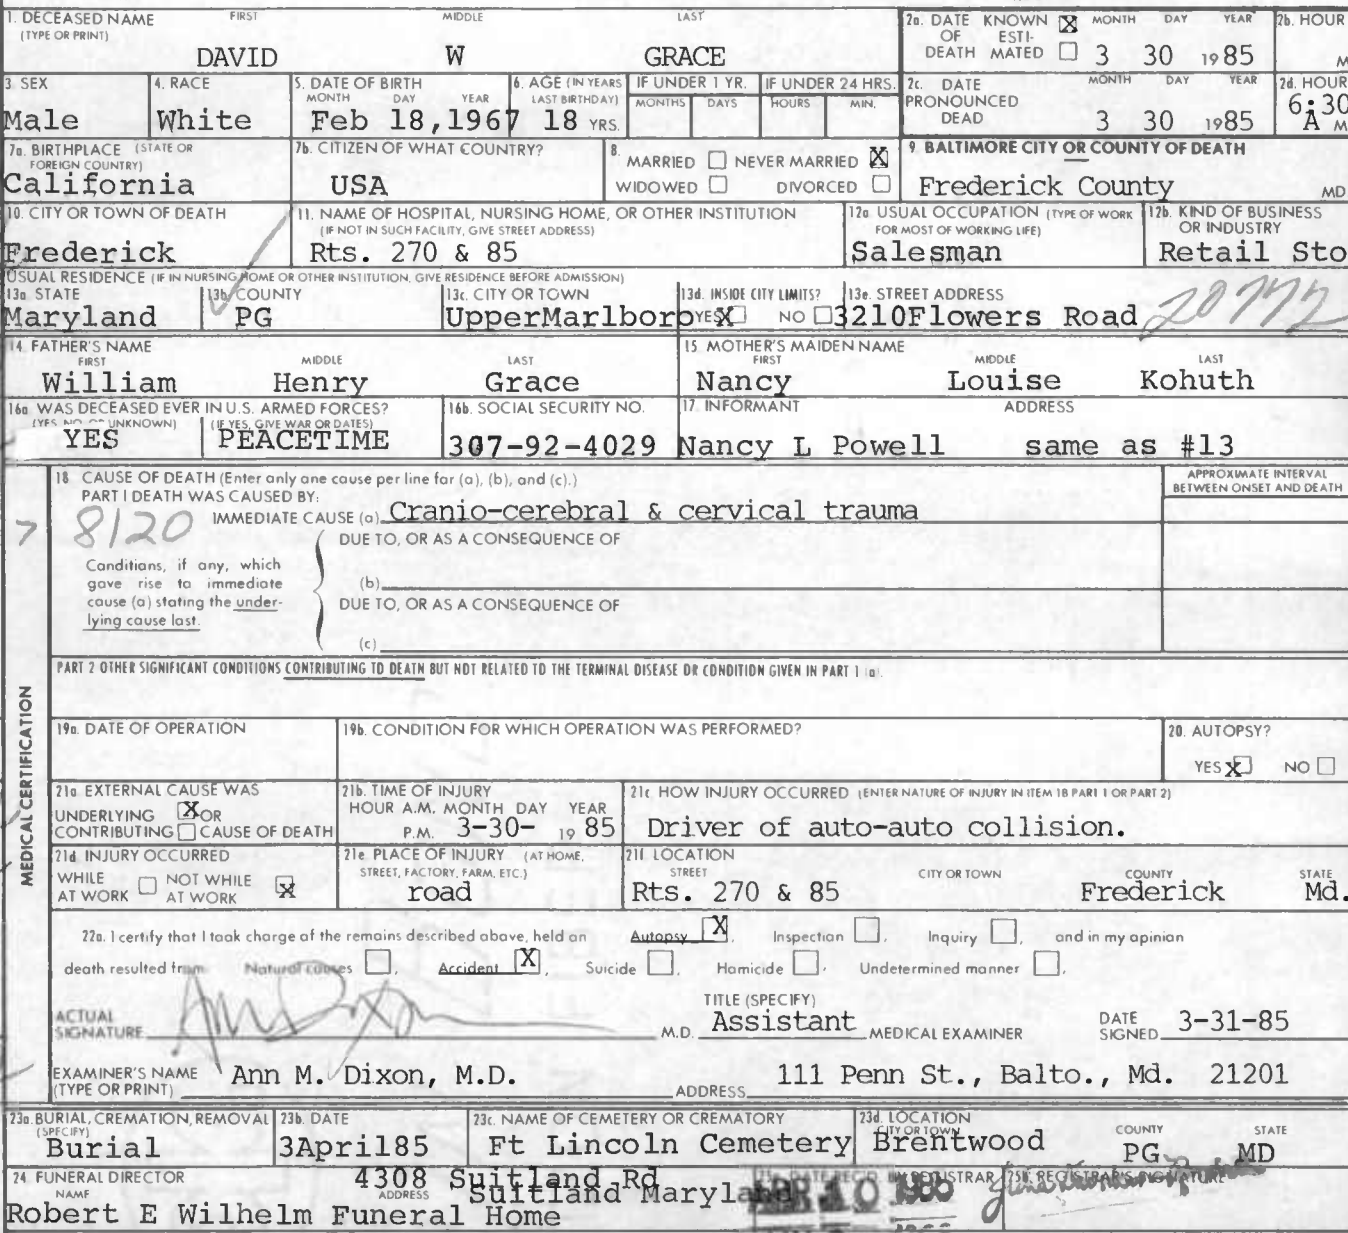 1. DECEASED NAME FIRST MIDDLE LAST
(TYPE OR PRINT)
DAVID W GRACE
2a. DATE OF DEATH KNOWN X ESTIMATED MONTH DAY YEAR
3 30 1985
2b. HOUR
M
3. SEX
Male
4. RACE
White
5. DATE OF BIRTH
MONTH DAY YEAR
Feb 18,1967
6. AGE (IN YEARS LAST BIRTHDAY)
18 YRS.
IF UNDER 1 YR.
MONTHS DAYS
IF UNDER 24 HRS.
HOURS MIN.
2c. DATE PRONOUNCED DEAD MONTH DAY YEAR
3 30 1985
2d. HOUR
6:30
A M
7a. BIRTHPLACE (STATE OR FOREIGN COUNTRY)
California
7b. CITIZEN OF WHAT COUNTRY?
USA
8. MARRIED NEVER MARRIED X
WIDOWED DIVORCED
9. BALTIMORE CITY OR COUNTY OF DEATH
Frederick County MD
10. CITY OR TOWN OF DEATH
Frederick
11. NAME OF HOSPITAL, NURSING HOME, OR OTHER INSTITUTION
(IF NOT IN SUCH FACILITY, GIVE STREET ADDRESS)
Rts. 270 & 85
12a. USUAL OCCUPATION (TYPE OF WORK FOR MOST OF WORKING LIFE)
Salesman
12b. KIND OF BUSINESS OR INDUSTRY
Retail Sto
USUAL RESIDENCE (IF IN NURSING HOME OR OTHER INSTITUTION, GIVE RESIDENCE BEFORE ADMISSION)
13a. STATE
Maryland
13b. COUNTY
PG
13c. CITY OR TOWN
UpperMarlboro
13d. INSIDE CITY LIMITS?
YES X NO
13e. STREET ADDRESS
3210Flowers Road 20772
14. FATHER'S NAME
FIRST MIDDLE LAST
William Henry Grace
15. MOTHER'S MAIDEN NAME
FIRST MIDDLE LAST
Nancy Louise Kohuth
16a. WAS DECEASED EVER IN U.S. ARMED FORCES?
(YES, NO OR UNKNOWN) (IF YES, GIVE WAR OR DATES)
YES PEACETIME
16b. SOCIAL SECURITY NO.
307-92-4029
17. INFORMANT ADDRESS
Nancy L Powell same as #13
18. CAUSE OF DEATH (Enter only one cause per line for (a), (b), and (c).)
PART I DEATH WAS CAUSED BY:
APPROXIMATE INTERVAL BETWEEN ONSET AND DEATH
8120
IMMEDIATE CAUSE (a) Cranio-cerebral & cervical trauma
DUE TO, OR AS A CONSEQUENCE OF
Conditions, if any, which
gave rise to immediate
cause (a) stating the under-
lying cause last.
(b)
DUE TO, OR AS A CONSEQUENCE OF
(c)
PART 2 OTHER SIGNIFICANT CONDITIONS CONTRIBUTING TO DEATH BUT NOT RELATED TO THE TERMINAL DISEASE OR CONDITION GIVEN IN PART 1 (a).
MEDICAL CERTIFICATION
19a. DATE OF OPERATION
19b. CONDITION FOR WHICH OPERATION WAS PERFORMED?
20. AUTOPSY?
YES X NO
21a. EXTERNAL CAUSE WAS
UNDERLYING X OR
CONTRIBUTING CAUSE OF DEATH
21b. TIME OF INJURY
HOUR A.M. MONTH DAY YEAR
P.M. 3-30- 1985
21c. HOW INJURY OCCURRED (ENTER NATURE OF INJURY IN ITEM 18 PART 1 OR PART 2)
Driver of auto-auto collision.
21d. INJURY OCCURRED
WHILE AT WORK NOT WHILE AT WORK X
21e. PLACE OF INJURY (AT HOME, STREET, FACTORY, FARM, ETC.)
road
21f. LOCATION
STREET CITY OR TOWN COUNTY STATE
Rts. 270 & 85 Frederick Md.
22a. I certify that I took charge of the remains described above, held an Autopsy X, Inspection, Inquiry, and in my opinion
death resulted from Natural causes, Accident X, Suicide, Homicide, Undetermined manner,
ACTUAL SIGNATURE Ann Dixon M.D.
TITLE (SPECIFY)
Assistant MEDICAL EXAMINER
DATE SIGNED 3-31-85
EXAMINER'S NAME
(TYPE OR PRINT) Ann M. Dixon, M.D.
ADDRESS 111 Penn St., Balto., Md. 21201
23a. BURIAL, CREMATION, REMOVAL
(SPECIFY)
Burial
23b. DATE
3April85
23c. NAME OF CEMETERY OR CREMATORY
Ft Lincoln Cemetery
23d. LOCATION
CITY OR TOWN COUNTY STATE
Brentwood PG MD
24. FUNERAL DIRECTOR
NAME ADDRESS
4308 Suitland Rd
Suitland Maryland
Robert E Wilhelm Funeral Home
25a. DATE REC'D. BY REGISTRAR
25b. REGISTRAR'S SIGNATURE